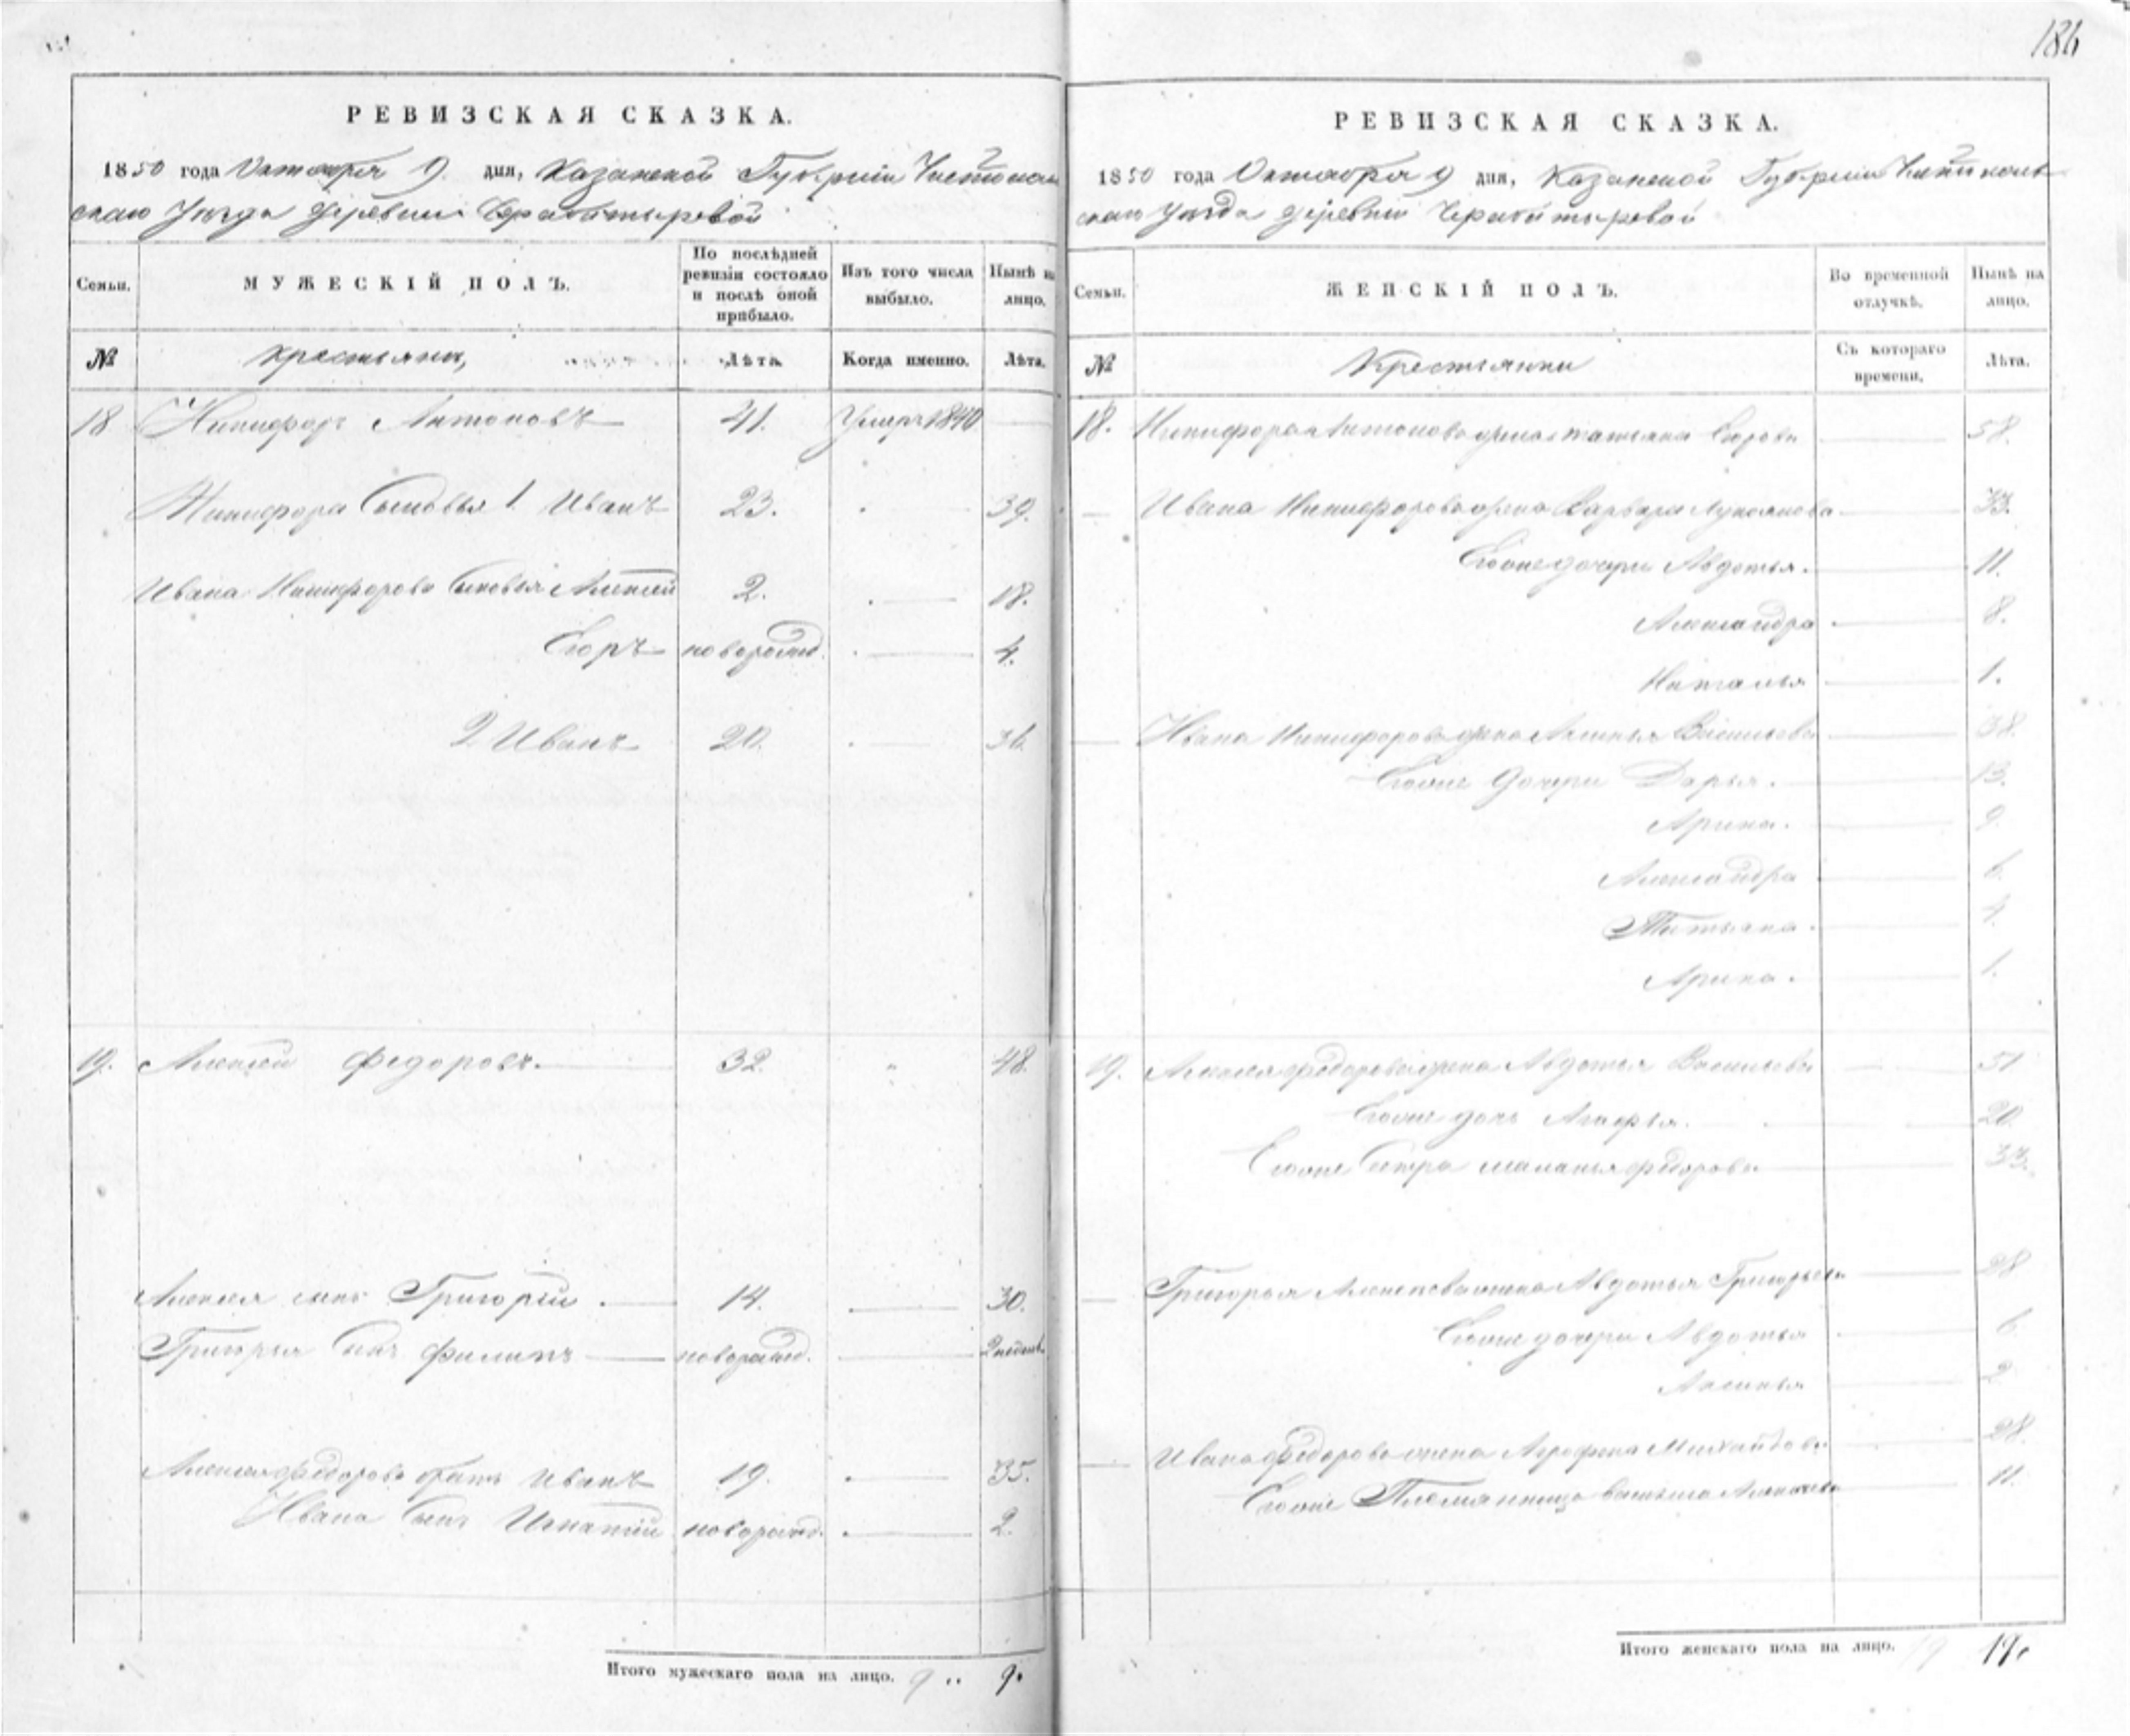 186
РЕВИЗСКАЯ СКАЗКА.
1850 года Октября 9 дня, Казанской Губернiи Чистополь
скаго Уѣзда деревни
Семьи.
МУЖЕСКІЙ ПОЛЪ.
По послѣдней ревизіи состояло и послѣ оной прибыло.
Изъ того числа выбыло.
Нынѣ на лицо.
№
Крестьяне,
Лѣта
Когда именно.
Лѣта.
18 Никифоръ Антоновъ 41. Умеръ 1840
Никифора Сыновья 1 Иванъ 23. 39.
Ивана Никифорова Сыновья Алексѣй 2. 18.
Егоръ новорожд. 4.
2 Иванъ 20. 36.
19. Алексѣй Федоровъ. 32. 48.
Алексея сынъ Григорiй. 14. 30.
Григорья Сынъ Филипъ новорожд. 2 недѣль.
Алексея Федорова братъ Иванъ 19. 35.
Ивана Сынъ Игнатiй новорожд. 2.
Итого мужескаго пола на лицо. 9 9.
РЕВИЗСКАЯ СКАЗКА.
1850 года Октября 9 дня, Казанской Губернiи Чистополь
скаго Уѣзда деревни
Семьи.
ЖЕНСКІЙ ПОЛЪ.
Во временной отлучкѣ.
Нынѣ на лицо.
№
Крестьянки
Съ котораго времени.
Лѣта.
18. Никифора Антонова жена Татьяна Егорова 58.
Ивана Никифорова жена Варвара Лукоянова 33.
Евоные дочери Авдотья. 11.
Александра 8.
Наталья 1.
Ивана Никифорова жена Аксинья Васильева 38.
Евоные дочери Дарья. 13.
Арина. 9.
Александра 6.
Татьяна. 4.
Арина. 1.
19. Алексея Федорова жена Авдотья Васильева 51
дочь Агафья. 20.
Сестра маланья Федорова 33.
Григорья Алексеева жена Авдотья Григорьева 28
Евоные дочери Авдотья 6.
Аксинья 2
Ивана Федорова жена Агрофена Михайлова 28.
Племянница Алексеева 11.
Итого женскаго пола на лицо. 19 19.